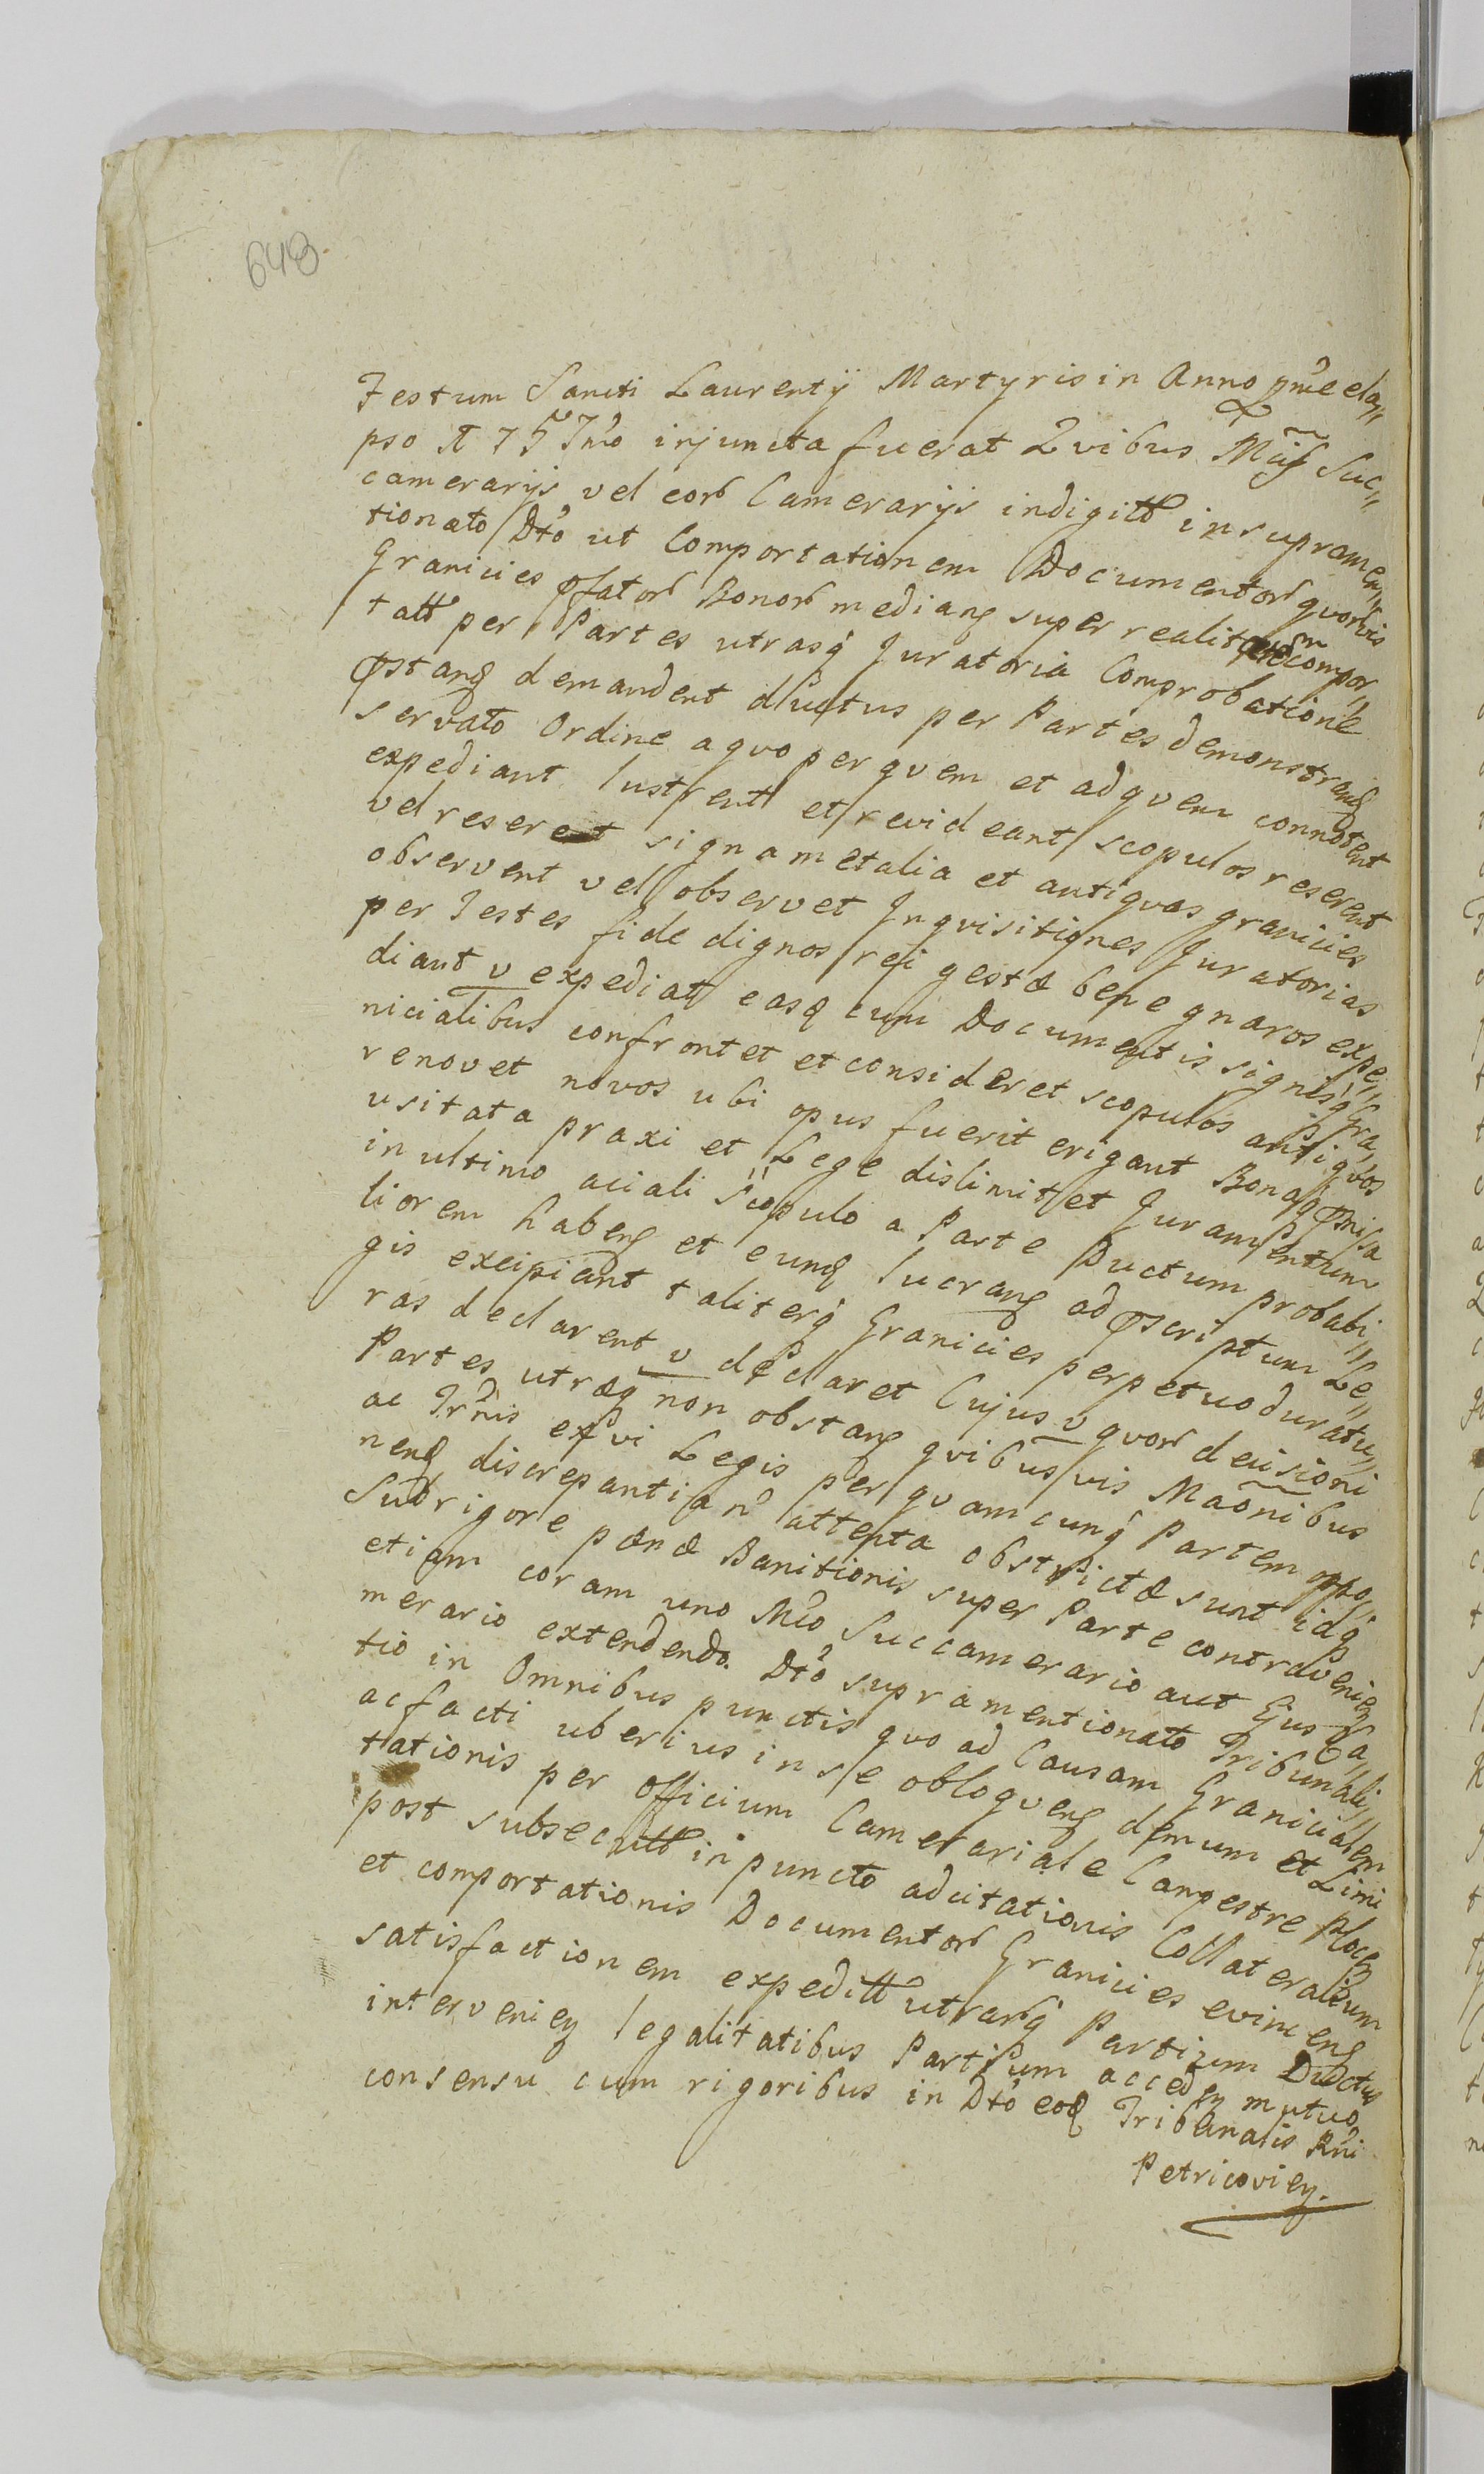 648
Festum Sancti Laurentÿ Martyris in Anno pme ela„
pso 1757mo injuncta fuerat Quibus Mcis Suc„
camerarÿs vel eorb Camerarÿs indigitt insupramen„
tionato Dto ut Comportationem Documentorb quorvis
Granicies pfatorb Bonorb median super realit compor„
tatt per Partes utrasq Juratoria Comprobatione
pstan demandent ductus per Partes demonstran
servato Ordine a quo per quem et ad quem connotent
expediant lustrent et revideant scopulos reserent
vel reseret signa metalia et antiquas granicies
observent vel observet Inquisitiones Juratorias
per Testes fide dignos rei gestæ bene gnaros expe„
diant v expediat easq cum Documentis signisq Gra„
nicialibus confrontet et consideret scopulos antiquos
renovet novos ubi opus fuerit erigant Bonaq pmissa
usitata praxi et Lege dislimitet Juramentum
in ultimo aciali Scopulo a Parte Ductum probabi„
liorem haben et eund lucran ad pscriptum Le„
gis excipiant taliterq Granicies perpetuo duratu„
ras declarent v declaret Cujus v quorb decisioni
Partes utræq non obstan quibusvis Maonibus
ac Trnis ex vi Legis per quamcunq Partem oppo„
nend discrepantia n attenta obstrictæ sunt idq
Sub rigore pænæ Banitionis super Parte contravenien
etiam coram uno Mco Succamerario aut Ejus Ca„
merario extendendo. Dto supramentionato Tribunali„
tio in Omnibus punctis quo ad Causam Granicialem
ac facti uberius in se obloquen demum et Limi
tationis per officium Camerariale Campestre Plocen
post subsecutt in puncto adcitationis Collateralium
et comportationis Documentorb Granicies evincen
satisfactionem expeditt utrarq Partium Ductus
intervenien legalitatibus Partium acceden mutuo
consensu cum rigoribus in Dto eod Tribunalis Rni
Petricovien.